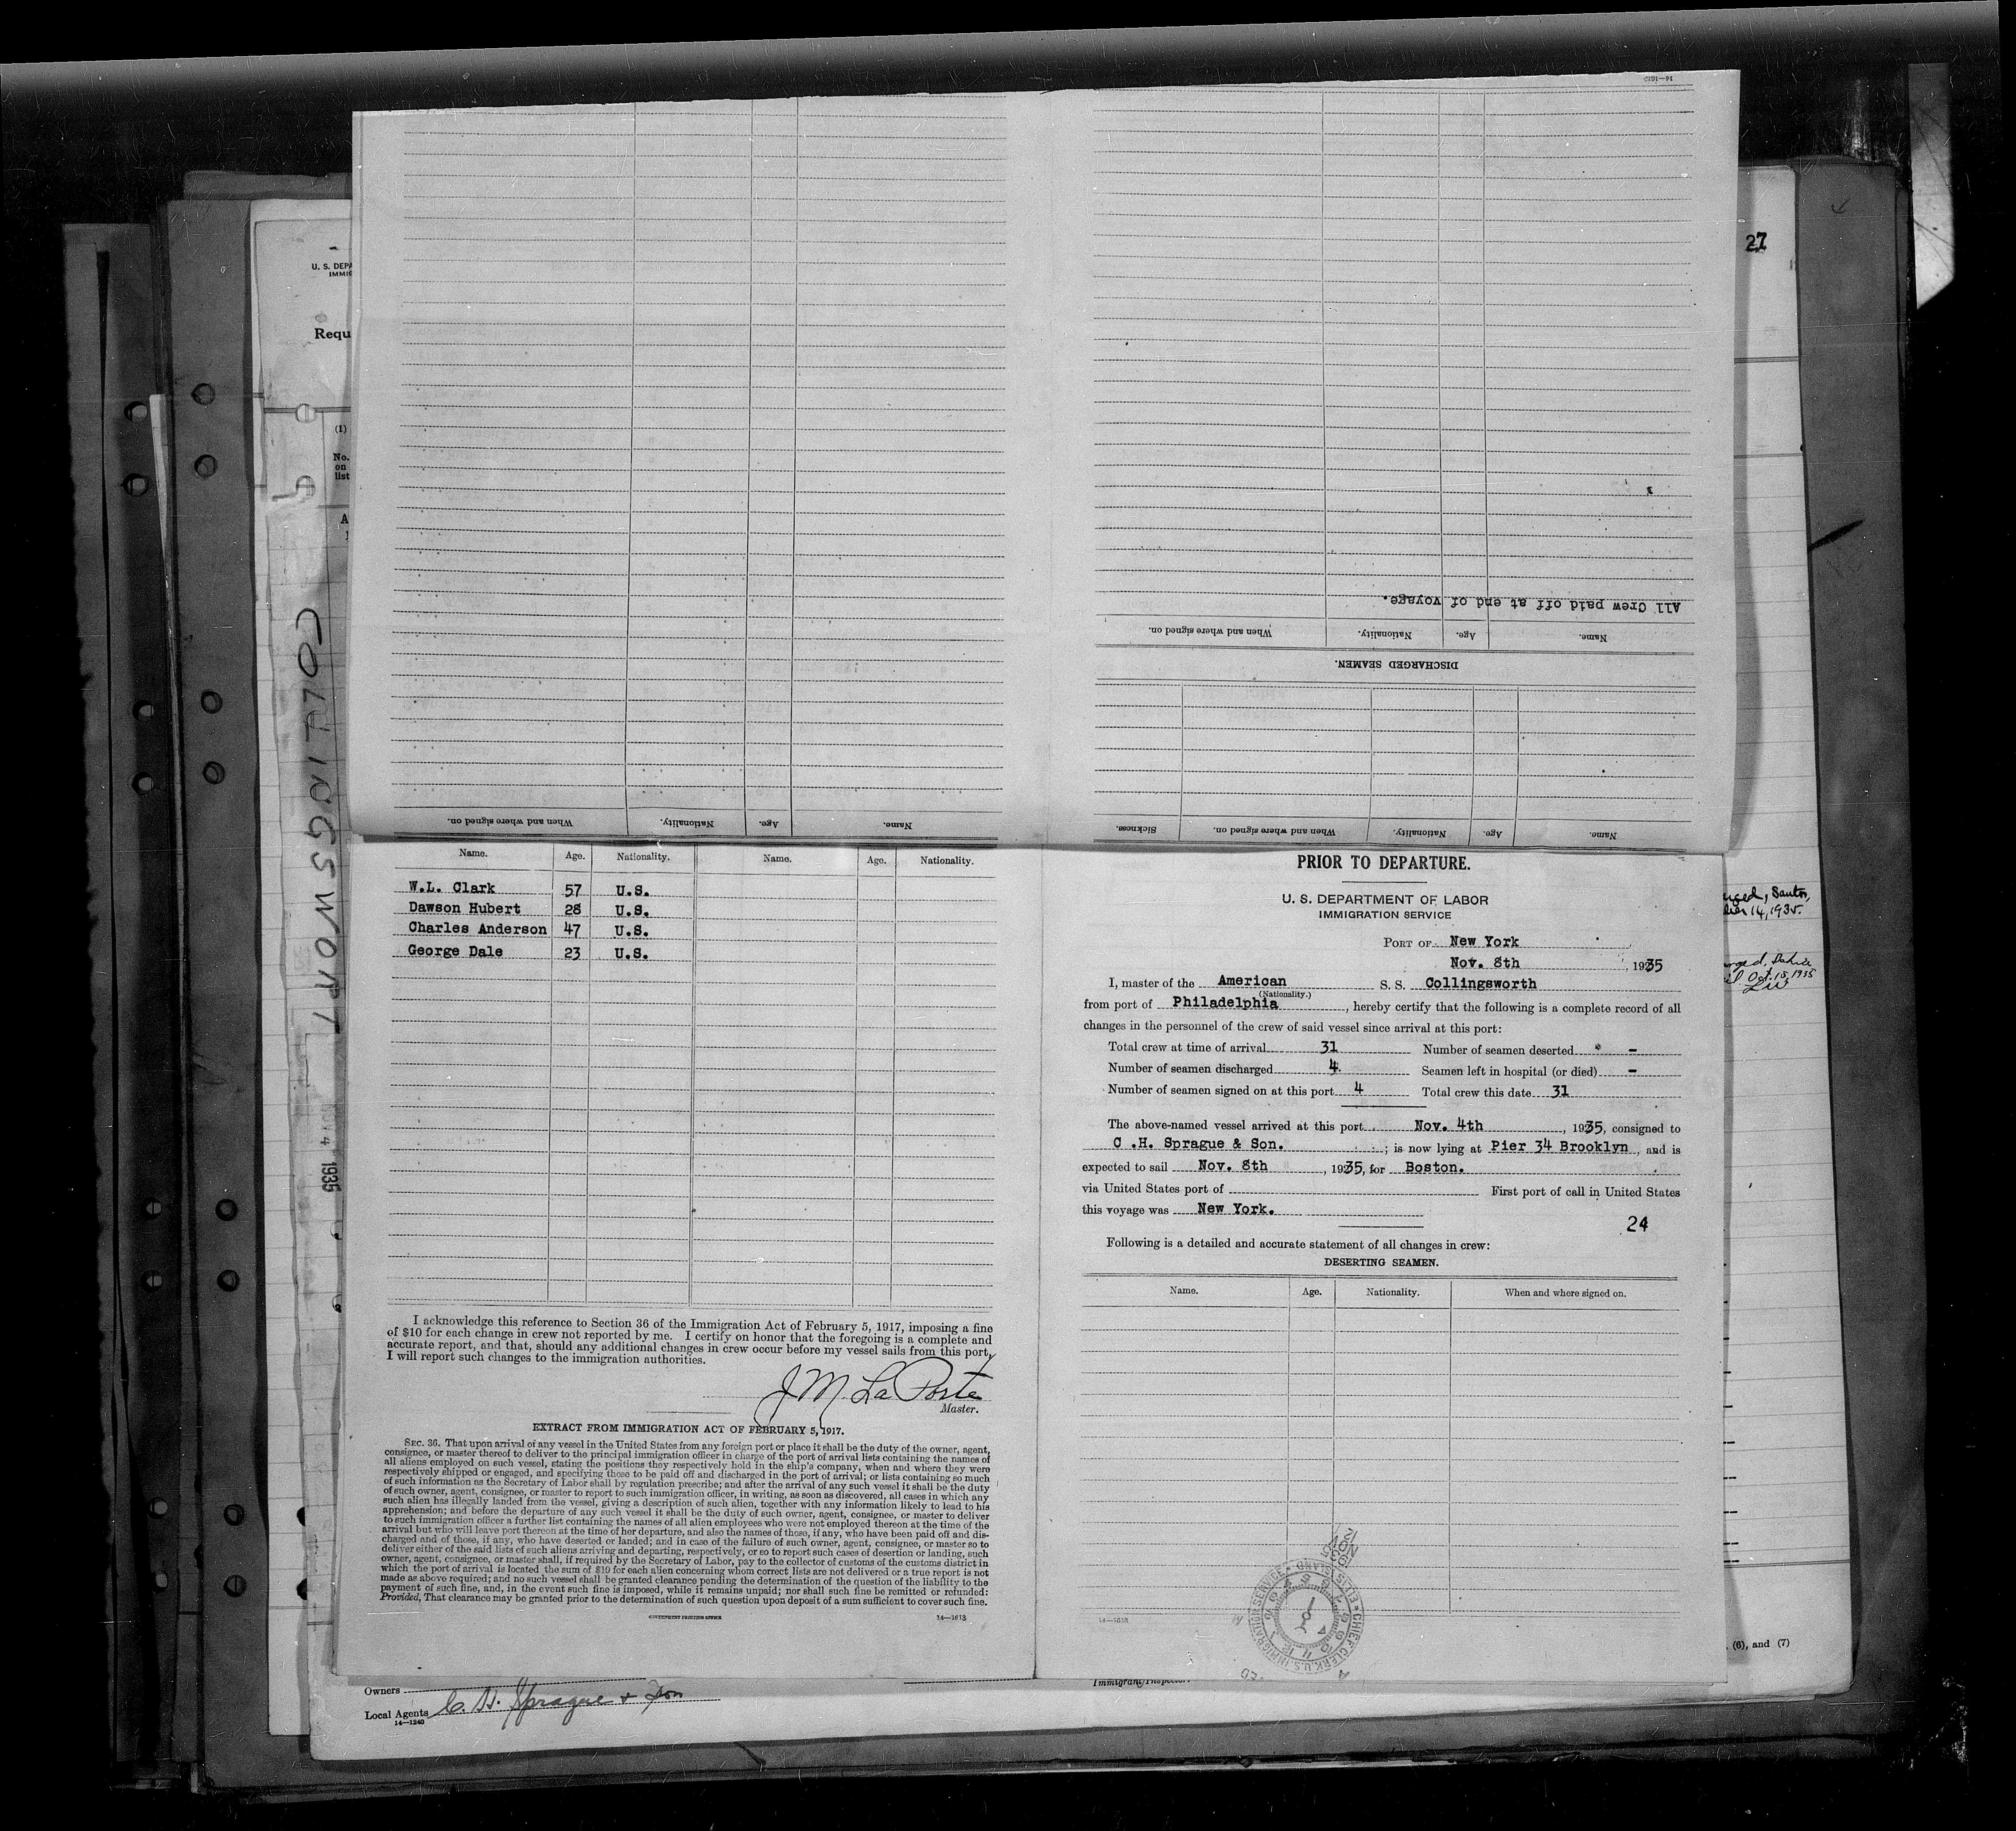 14—1613
27
U. S. DEPA
IMMIG
Requ
(1)
No.
on
list
COLLINGSWORT
NOV 4 1935
All Crew paid off at end of voyage.
Name. Age. Nationality. When and where signed on.
DISCHARGED SEAMEN.
Name. Age. Nationality. When and where signed on. Sickness.
Name. Age. Nationality. When and where signed on.
Name. Age. Nationality. Name. Age. Nationality.
W.L. Clark 57 U.S.
Dawson Hubert 28 U.S.
Charles Anderson 47 U.S.
George Dale 23 U.S.
I acknowledge this reference to Section 36 of the Immigration Act of February 5, 1917, imposing a fine
of $10 for each change in crew not reported by me. I certify on honor that the foregoing is a complete and
accurate report, and that, should any additional changes in crew occur before my vessel sails from this port,
I will report such changes to the immigration authorities.
J M. La Porte
Master.
EXTRACT FROM IMMIGRATION ACT OF FEBRUARY 5, 1917.
SEC. 36. That upon arrival of any vessel in the United States from any foreign port or place it shall be the duty of the owner, agent,
consignee, or master thereof to deliver to the principal immigration officer in charge of the port of arrival lists containing the names of
all aliens employed on such vessel, stating the positions they respectively hold in the ship's company, when and where they were
respectively shipped or engaged, and specifying those to be paid off and discharged in the port of arrival; or lists containing so much
of such information as the Secretary of Labor shall by regulation prescribe; and after the arrival of any such vessel it shall be the duty
of such owner, agent, consignee, or master to report to such immigration officer, in writing, as soon as discovered, all cases in which any
such alien has illegally landed from the vessel, giving a description of such alien, together with any information likely to lead to his
apprehension; and before the departure of any such vessel it shall be the duty of such owner, agent, consignee, or master to deliver
to such immigration officer a further list containing the names of all alien employees who were not employed thereon at the time of the
arrival but who will leave port thereon at the time of her departure, and also the names of those, if any, who have been paid off and dis-
charged and of those, if any, who have deserted or landed; and in case of the failure of such owner, agent, consignee, or master so to
deliver either of the said lists of such aliens arriving and departing, respectively, or so to report such cases of desertion or landing, such
owner, agent, consignee, or master shall, if required by the Secretary of Labor, pay to the collector of customs of the customs district in
which the port of arrival is located the sum of $10 for each alien concerning whom correct lists are not delivered or a true report is not
made as above required; and no such vessel shall be granted clearance pending the determination of the question of the liability to the
payment of such fine, and, in the event such fine is imposed, while it remains unpaid; nor shall such fine be remitted or refunded:
Provided, That clearance may be granted prior to the determination of such question upon deposit of a sum sufficient to cover such fine.
GOVERNMENT PRINTING OFFICE 14—1613
PRIOR TO DEPARTURE.
U. S. DEPARTMENT OF LABOR
IMMIGRATION SERVICE
PORT OF New York
Nov. 8th, 1935
I, master of the American S. S. Collingsworth
(Nationality.)
from port of Philadelphia, hereby certify that the following is a complete record of all
changes in the personnel of the crew of said vessel since arrival at this port:
Total crew at time of arrival 31 Number of seamen deserted -
Number of seamen discharged 4 Seamen left in hospital (or died) -
Number of seamen signed on at this port 4 Total crew this date 31
The above-named vessel arrived at this port Nov. 4th, 1935, consigned to
C .H. Sprague & Son. ; is now lying at Pier 34 Brooklyn, and is
expected to sail Nov. 8th, 1935, for Boston.
via United States port of First port of call in United States
this voyage was New York.
24
Following is a detailed and accurate statement of all changes in crew:
DESERTING SEAMEN.
Name. Age. Nationality. When and where signed on.
14—1613
CHIEF CLERK, U.S. IMMIGRATION SERVICE • ELLIS ISLAND
Santos,
14, 1935.
Oct. 15, 1935
(6), and (7)
Owners
Local Agents C. H. Sprague & Son
14—1240
Immigrant Inspector.